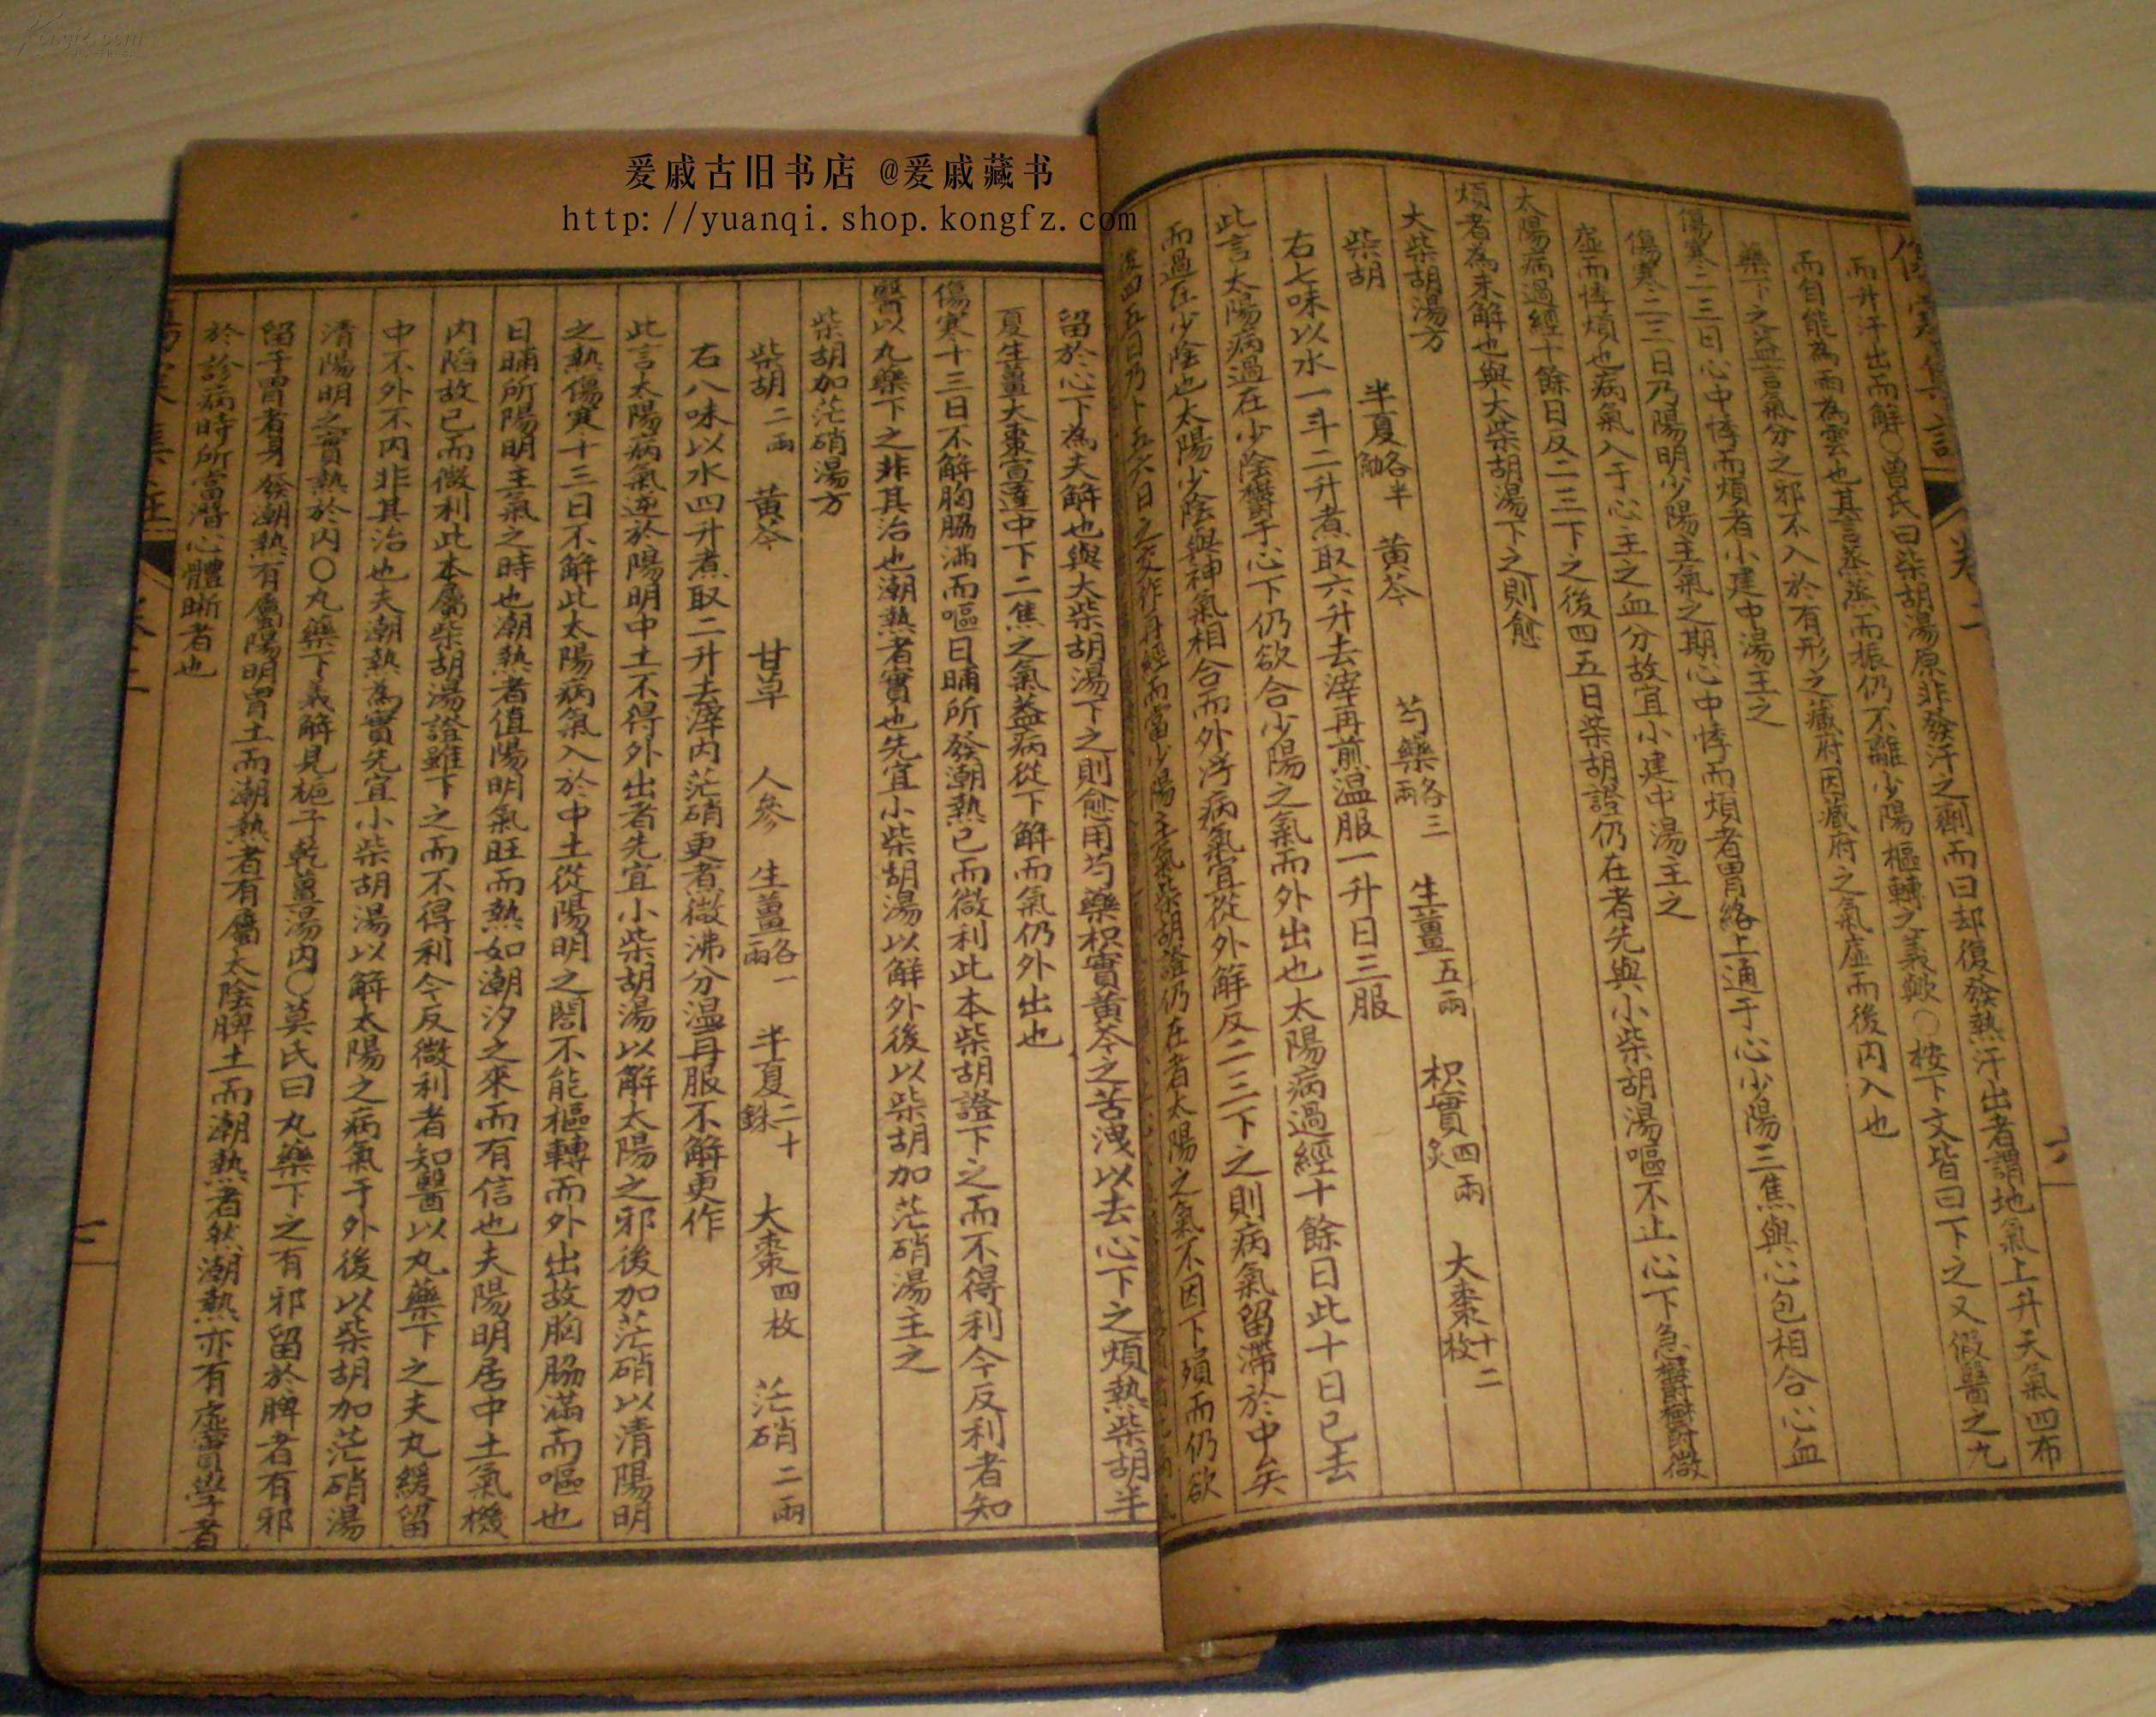 爰戚古旧书店 @爰戚藏书
http://yuanqi.shop.kongfz.com
傷寒集註 卷二
而升汗出而解○曾氏曰柴胡湯原非發汗之劑而曰却復發熱汗出者謂地氣上升天氣四布
而自能為雨為雲也其言蒸蒸而振仍不離少陽樞轉之義歟○按下文皆曰下之又假醫之九
藥下之益言氣分之邪不入於有形之藏府因藏府之氣虛而後内入也
傷寒二三日心中悸而煩者小建中湯主之
傷寒二三日乃陽明少陽主氣之期心中悸而煩者胃絡上通于心少陽三焦與心包相合心血
虛而悸煩也病氣入于心主之血分故宜小建中湯主之
太陽病過經十餘日反二三下之後四五日柴胡證仍在者先與小柴胡湯嘔不止心下急鬱鬱微
煩者為未解也與大柴胡湯下之則愈
大柴胡湯方
柴胡 半夏各半觔 黄芩 芍藥各三兩 生薑五兩 枳實四兩炙 大棗十二枚
右七味以水一斗二升煮取六升去滓再煎温服一升日三服
此言太陽病過在少陰鬱于心下仍欲合少陽之氣而外出也太陽病過經十餘日此十日已去
而過在少陰也太陽少陰與神氣相合而外浮病氣宜從外解反二三下之則病氣留滯於中矣
後四五日乃十五六日之交作再經而當少陽主氣柴胡證仍在者太陽之氣不因下殞而仍欲
留於心下為夫解也與大柴胡湯下之則愈用芍藥枳實黄芩之苦洩以去心下之煩熱柴胡半
夏生薑大棗宣達中下二焦之氣益病從下解而氣仍外出也
傷寒十三日不解胸脇满而嘔日晡所發潮熱已而微利此本柴胡證下之而不得利今反利者知
醫以丸藥下之非其治也潮熱者實也先宜小柴胡湯以解外後以柴胡加茫硝湯主之
柴胡加茫硝湯方
柴胡二兩 黄芩 甘草 人參 生薑各一兩 半夏二十銖 大棗四枚 茫硝二兩
右八味以水四升煮取二升去滓内茫硝更煮微沸分温再服不解更作
此言太陽病氣逆於陽明中土不得外出者先宜小柴胡湯以解太陽之邪後加茫硝以清陽明
之熱傷寒十三日不解此太陽病氣入於中土從陽明之闔不能樞轉而外出故胸脇滿而嘔也
日晡所陽明主氣之時也潮熱者值陽明氣旺而熱如潮汐之來而有信也夫陽明居中土氣機
内陷故已而微利此本屬柴胡湯證雖下之而不得利今反微利者知醫以丸藥下之夫丸緩留
中不外不内非其治也夫潮熱為實先宜小柴胡湯以解太陽之病氣于外後以柴胡加茫硝湯
清陽明之實熱於内○丸藥下義解見梔子乾薑湯内○莫氏曰丸藥下之有邪留於脾者有邪
留于胃者身發潮熱有屬陽明胃土而潮熱者有屬太陰脾土而潮熱者然潮熱亦有虛實學者
於診病時所當潛心體晰者也